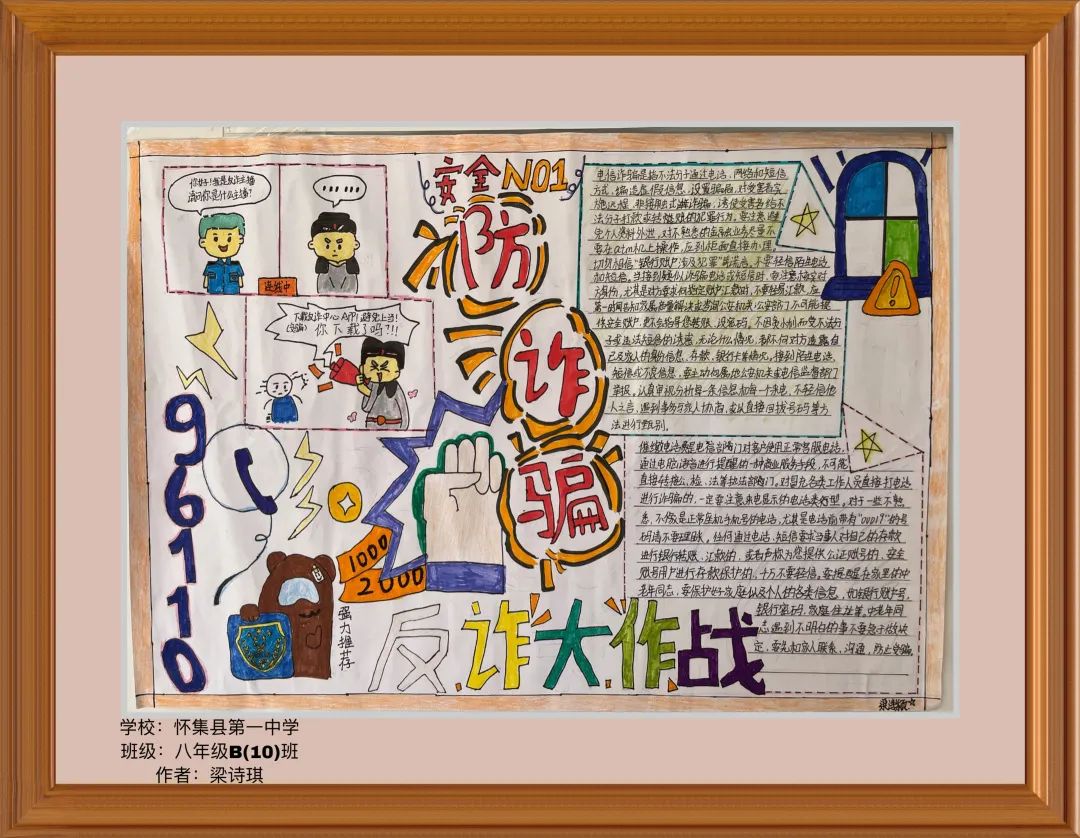 你好!我是反诈主播
请问你是什么主播?
......
连线中
下载反诈中心APP!避免上当!
你下载了吗?!!
安全NO1
防
诈
骗
96110
1000
2000
强力推荐
反诈大作战
电信诈骗是指不法分子通过电话、网络和短信
方式,编造虚假信息,设置骗局,对受害者实
施远程、非接触式诈骗,诱使受害者给不
法分子打款或转账的犯罪行为。要注意避
免个人资料外泄,对不熟悉的金融业务尽量不
要在atm机上操作,应到柜面直接办理。
切勿相信"银行账户涉及犯罪"等谎言,不要轻信陌生电话
和短信。当接到疑似诈骗电话或短信时,要注意核实对
方身份,尤其是对方要求向指定账户汇款时,不要轻易汇款,应
第一时间告知家属商量解决或咨询公安机关,公安部门不可能提
供安全账户,更不会指导您转账、设密码。不因贪小利而受不法分
子或违法短信的诱惑,无论什么情况,都不向对方透露自
己及家人的身份信息、存款、银行卡等情况。接到陌生电话、
短信或不良信息,要主动向属地公安机关或电信监督部门
举报,认真审视分析每一条信息和每一个来电,不轻信他
人之言,遇到事多与家人协商,或以直接回拨号码等方
法进行甄别。
催缴电话费是电信部门对客户使用正常客服电话,
通过电脑语音进行提醒的一种商业服务手段,不可能
直接转接公、检、法等执法部门。对冒充各类工作人员直接打电话
进行诈骗的,一定要注意来电显示的电话类型,对于一些不熟
悉、不像是正常座机手机号的电话,尤其是电话前带有"00019"的号
码请不要理睬。任何通过电话、短信要求当事人对自己的存款
进行银行转账、汇款的,或者声称为您提供公证账号的、安全
账号用户进行存款保护的,千万不要轻信。要提醒在家里的中
老年同志,要保护好家庭以及个人的各类信息,如银行账户号、
银行密码、家庭住址等,中老年同
志遇到不明白的事不要急于做决
定,要先和家人联系、沟通,防止受骗。
学校:怀集县第一中学
班级:八年级B(10)班
作者:梁诗琪